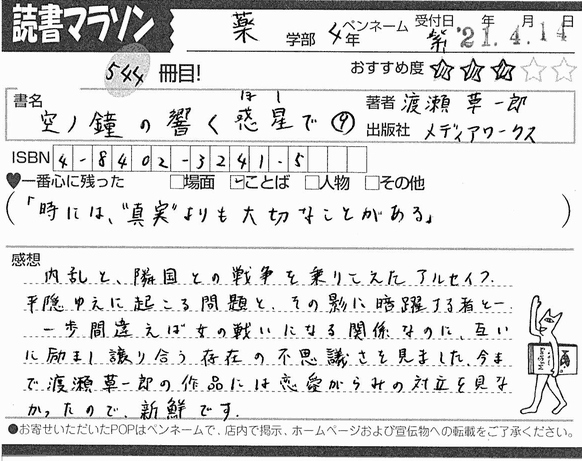 読書マラソン
薬 学部 4年 ペンネーム 紫 受付日 '21.4.14 年 月 日
544 冊目! おすすめ度 ★★★☆☆
書名 空ノ鐘の響く惑星で ⑨
ほし
著者 渡瀬 草一郎
出版社 メディアワークス
ISBN 4-8402-3241-5
♥一番心に残った □場面 ☑ことば □人物 □その他
(「時には、"真実"よりも大切なことがある」)
感想
内乱と、隣国との戦争を乗りこえたアルセイフ。
平穏ゆえに起こる問題と、その影に暗躍する者と―
一歩間違えば女の戦いになる関係なのに、互い
に励まし譲り合う存在の不思議さを見ました。今ま
で渡瀬草一郎の作品には恋愛がらみの対立を見な
かったので、新鮮です。
●お寄せいただいたPOPはペンネームで、店内で掲示、ホームページおよび宣伝物への転載をご了承ください。